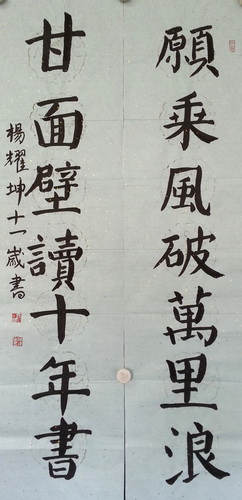 願乘風破萬里浪
甘面壁讀十年書
楊耀坤十一歲書